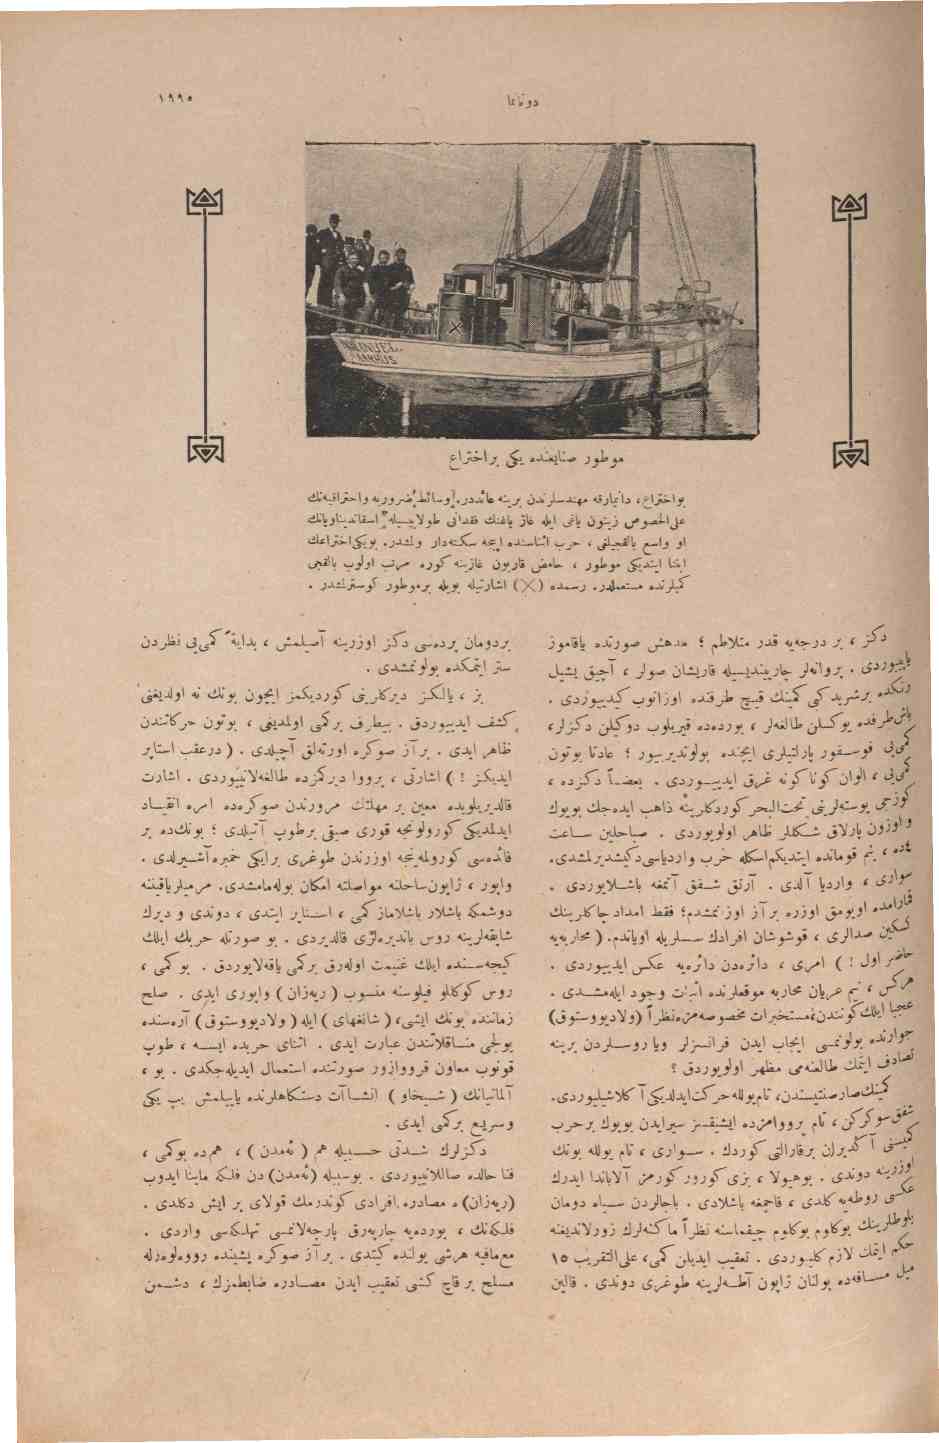 دوننما
١٩٩٥
موطور صنایعنده یكی بر اختراع
بواختراع ، دانیمارقه مهندسلرندن برینه عائددر. وسائط ضروریه واحتراقیه‌نك
علی‌الخصوص زیتون یاغی ایله غاز یاغنك فقدانی طولاییسیله اسقاندیناویانك
او واسع بالقجیلغی ، حرب اثناسنده ایجه سكته‌دار ولشدر. بویكی‌اختراعك
ابتنا ایتدیكی موطور ، حامض قاربون غازینه كوره مرتب اولوب بالقجی
كمیلرنده مستعملدر. رسمده (×) اشارتیله بویله برموطور كوسترلمشدر .
دكز ، بر درجه‌یه قدر متلاطم ؛ مدهش صورتده یاقاموز
یاپییوردی . پروانه‌لر چارپیندیسیله قاریشان صولر ، آچیق یشیل
رنكده برشرید كبی كمینك قیچ طرفنده اوزانوب كیدییوردی .
باش‌طرفده یوكسلن طالغه‌لر ، بوردەده قیریلوب دوكیلن دكزلر،
كمی‌یی فوسفور پارلتیلری ایچنده بولوندیریبور ؛ عادتا بوتون
كمی‌یی ، الوان كوناكونه غرق ایدییوردی . بعضاً دكزده ،
كوزجی پوسته‌لرینی تحت‌البحر كوردكلرینه ذاهب ایده‌جك بویوك
واوزون پارلاق شكللر ظاهر اولویوردی . صباحلین ساعت
٤ده ، بنم قوماندە ایتدیكم‌اسكله حرب واردیاسی‌دكیشدیرلمشدی.
سواری ، واردیا آلدی . آرتق شفق آتمغه باشلایوردی .
قمارامده اویومق اوزره بر آز اوزنمشدم؛ فقط امداد چاكلرینك
كسكین صدالری ، قوشوشان افرادك سسلریله اویاندم. ( محاربه‌یه
حاضر اول ! ) امری ، دائره‌دن دائره‌یه عكس ایدییوردی .
هركس ، نیم عریان محاربه موقعلرنده اثبات وجود ایله‌مشدی .
عجبا ایلك‌كوندن‌مستخبرات مخصوصه‌مزه‌نظراً (ولادیووستوق)
جوارنده بولونمسی ایجاب ایدن فرانسزلر ویا روسلردن برینه
تصادف ایتمك طالعنه‌می مظهر اولویوردق ؟
كمینك‌صارصنتیسندن، تام‌یولله‌حركت‌ایدلدیكی آكلاشیلیوردی.
شفق‌سوكركن ، تام پرووامزده ایشیقسز سیرایدن بویوك برحرب
كمیسنی آكدیرلن برقارالتی كوردك . سواری ، تام یولله بونك
اوزرینه دوندی . بوهیولا ، بزی كورور كورمز آلاباندا ایدرك
عكسی روطه‌یه كلدی ، قاچمغه باشلادی . باجالردن سیاه دومان
بلوطلرینك بوكلوم بوكلوم چیقماسنه نظراً ماكنه‌لرك زورلاندیغنه
حكم ایتمك لازم كلیوردی . تعقیب ایدیلن كمی، علی‌التقریب ١٥
میل مسافه‌ده بولنان ژاپون آطه‌لرینه طوغری دوندی . قالین
بردومان پرده‌سی دكز اوزرینه آصلمش ، بدایة كمی‌یی نظردن
ستر ایتمكده بولونمشدی .
بز ، یالكز دیركلرینی كوردیكمز ایچون بونك نه اولدیغنی
كشف ایدییوردق . بیطرف بركمی اولمدیغی ، بوتون حركاتندن
ظاهر ایدی . بر آز صوكره اورته‌لق آچیلدی . ( درعقب استاپر
ایدیكز ! ) اشارتی ، پرووا دیركمزده طالغه‌لانییوردی . اشارت
قالدیریلوبده معین بر مهلتك مرورندن صوكره‌ده امره انقیاد
ایدلمدیكی كورولونجه قوری صیقی برطوپ آتیلدی ؛ بونك‌ده بر
فائده‌سی كورولمه‌ینجه اوزرندن طوغری برایكی خمبره آشیرلدی .
واپور ، ژاپون‌ساحلنه مواصلته امكان بوله‌مامشدی. مرمیلریاقیننه
دوشمكه باشلار باشلاماز كمی ، استاپر ایتدی ، دوندی و دیرك
شاپقه‌لرینه روس باندیره‌لری قالدیردی . بو صورتله حربك ایلك
كیجه‌سنده ایلك غنیمت اوله‌رق بركمی یاقه‌لایوردق . بوكمی ،
روس كوكللو فیلوسنه منسوب ( ریه‌زان ) واپوری ایدی . صلح
زماننده بونك ایشی، ( شانغهای ) ایله ( ولادیووستوق ) آره‌سنده
یولجی مناقلاتندن عبارت ایدی . اثنای حربده ایسه ، طوپ
قونوب معاون قرووازور صورتنده استعمال ایدیله‌جكدی . بو ،
آلمانیانك ( شیخاو ) انشاآت دستكاهلرنده یاپیلمش یپ یكی
وسریع بركمی ایدی .
دكزلرك شدتی حسبیله هم ( ئه‌مدن ) ، هم‌ده بوكمی ،
فنا حالده صاللانییوردی . بوسببله (ئه‌مدن) دن فلكه ماینا ایدوب
(ریه‌زان) ه مصادره افرادی كوندرمك قولای بر ایش دكلدی .
فلكه‌نك ، بوردەیه چارپه‌رق پارچه‌لانمسی تهلكه‌سی واردی .
مع‌مافیه هرشی یولنده كیتدی . بر آز صوكره یشینده رووه‌لوه‌رله
مسلح بر قاچ كشی تعقیب ایدن مصادره ضابطمزك ، دشمن